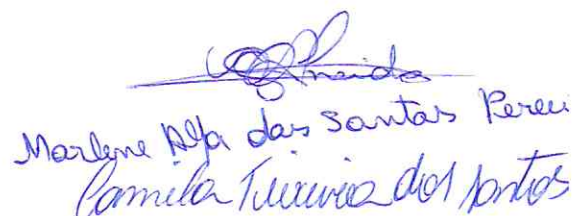 Almeida
Marlene Alfa dos Santos Perei
Camila Teixeira dos Santos